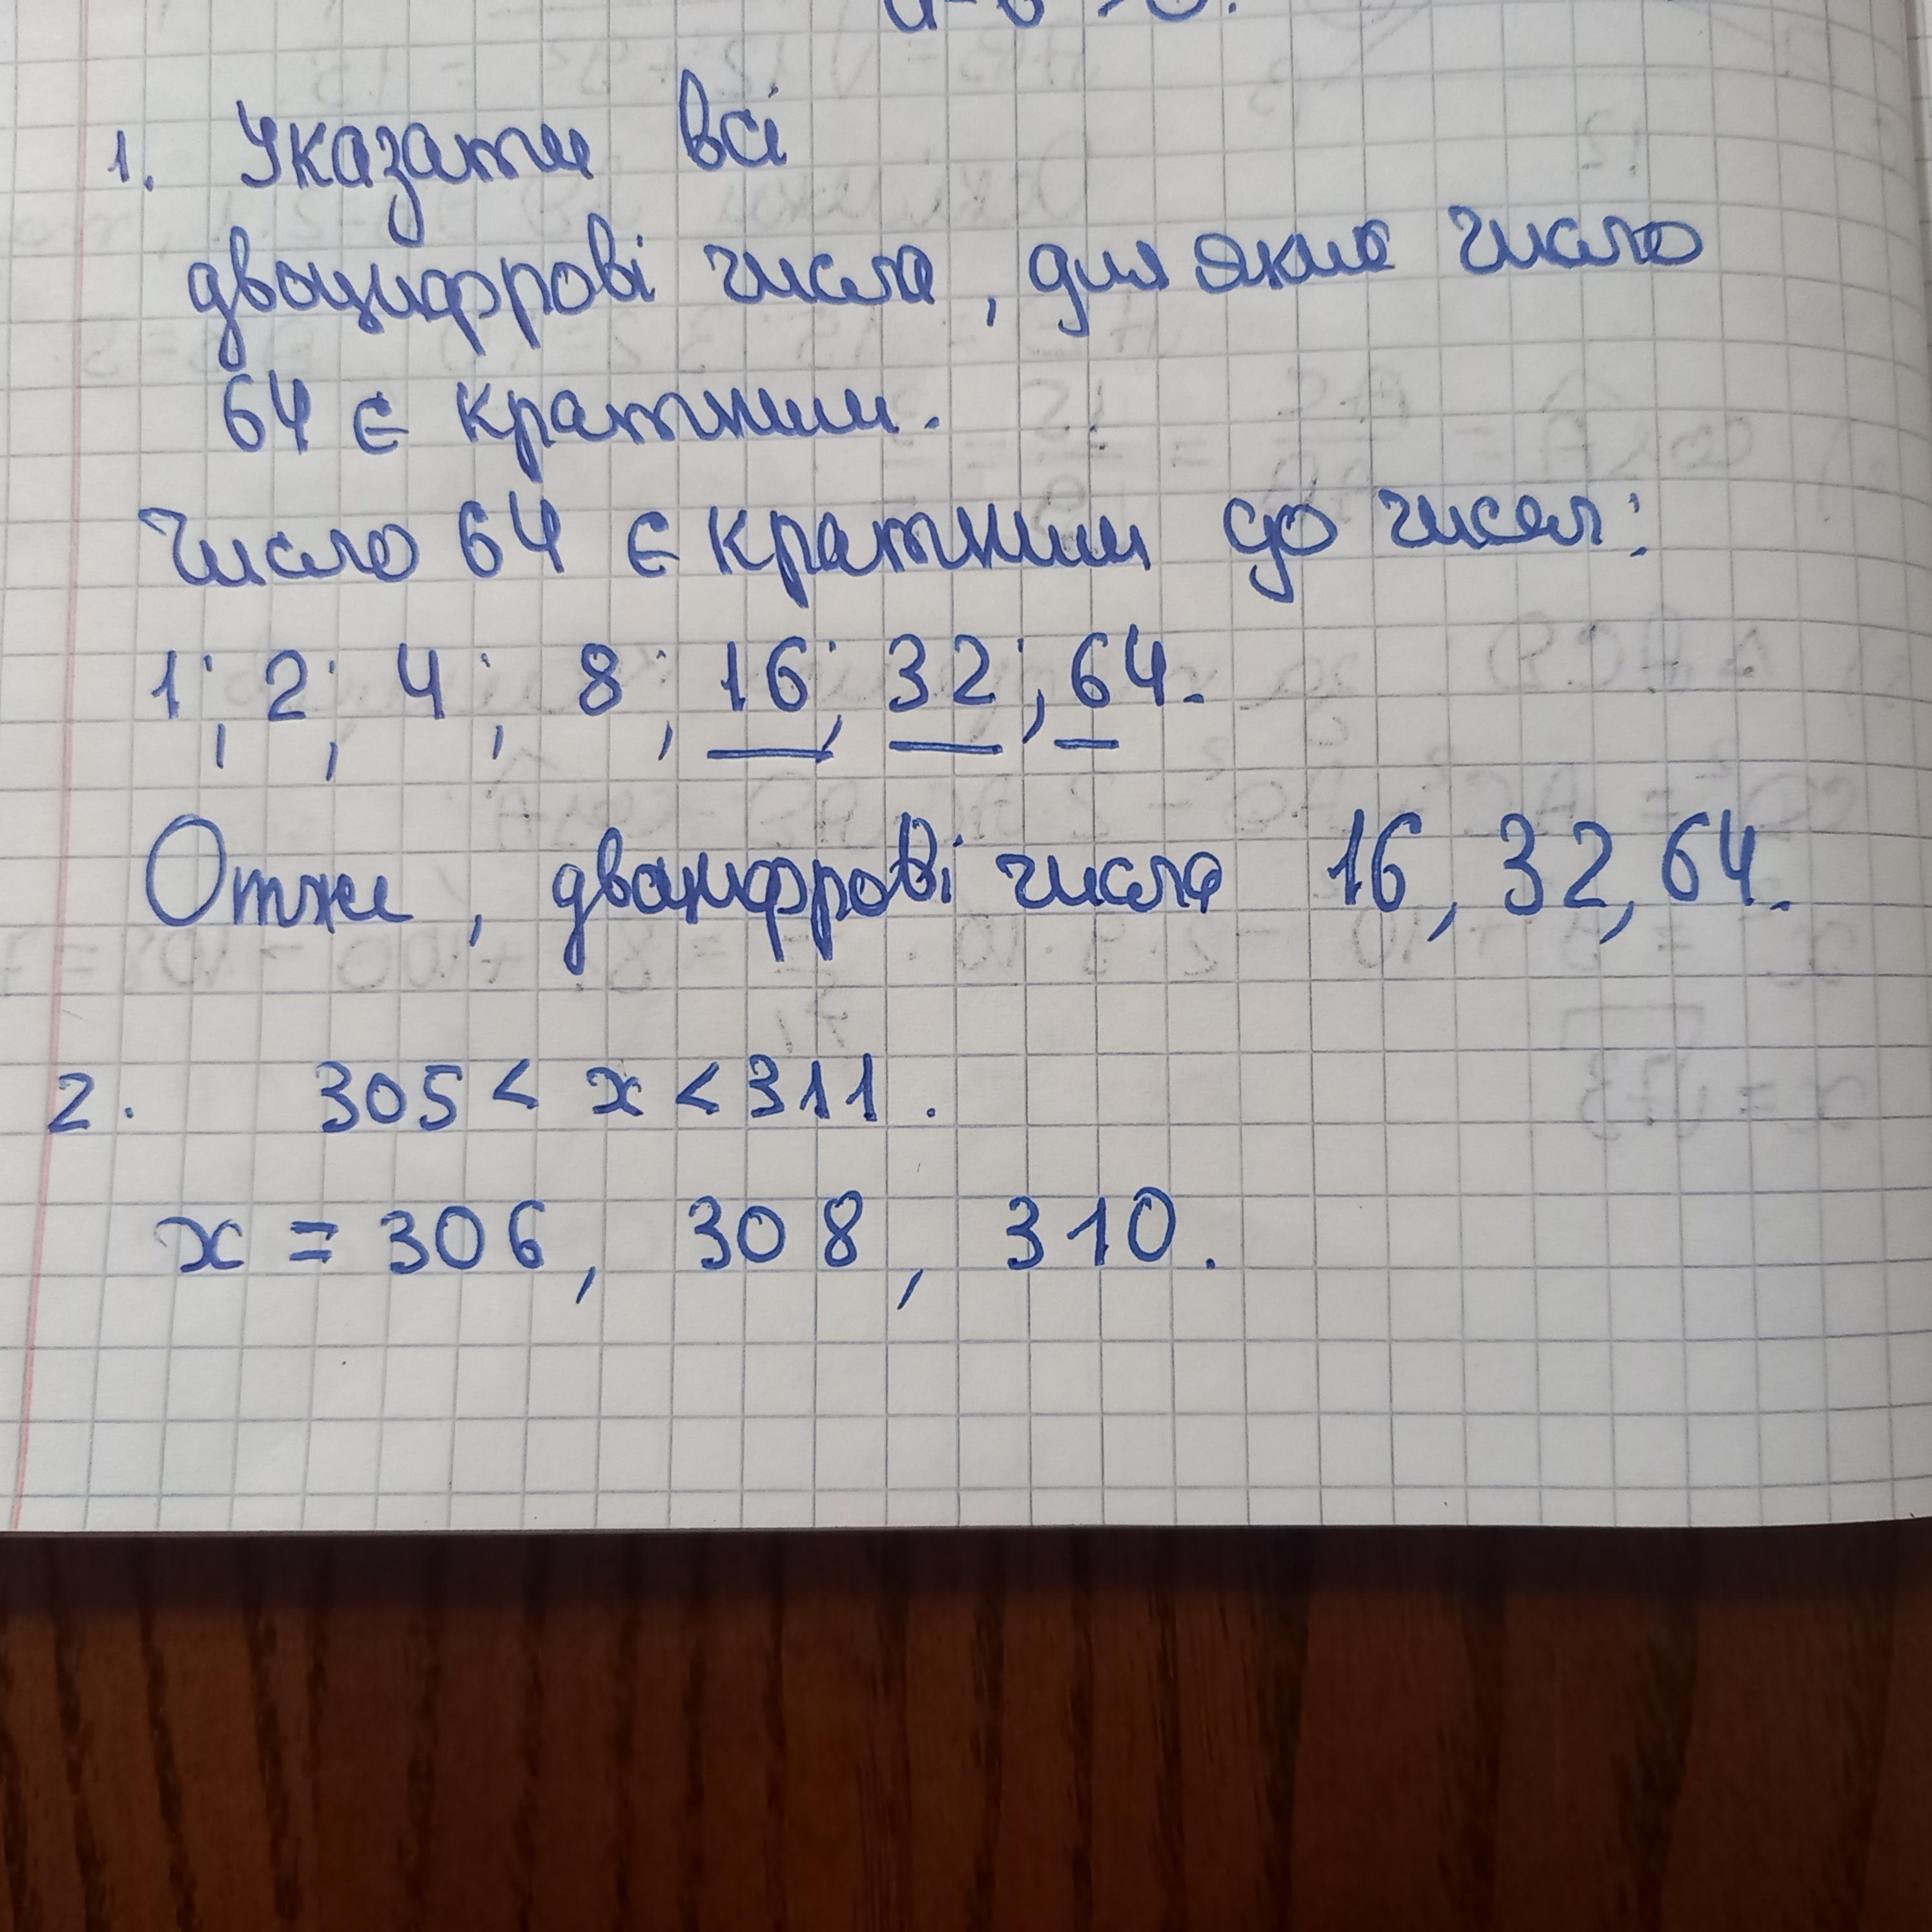 1. Указати всі
двоцифрові числа, для яких число
64 є кратним.
Число 64 є кратним до чисел:
1; 2; 4; 8; 16; 32; 64.
Отже, двоцифрові числа 16, 32, 64.
2. 305 < x < 311.
x = 306, 308, 310.